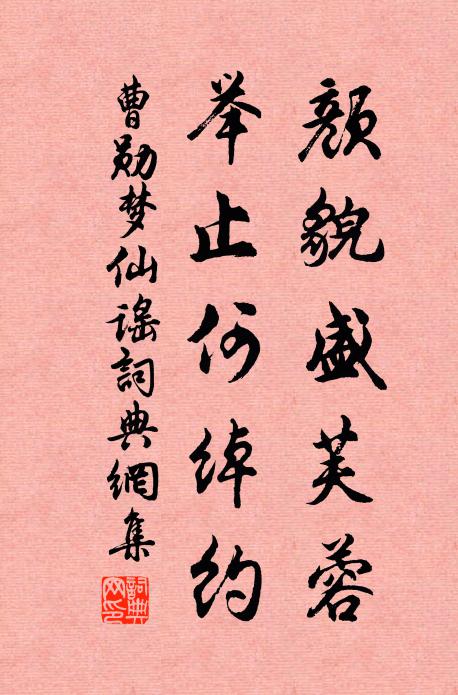 颜貌盛芙蓉
举止何绰约
曹勋梦仙谣詞典網集
詞典網印